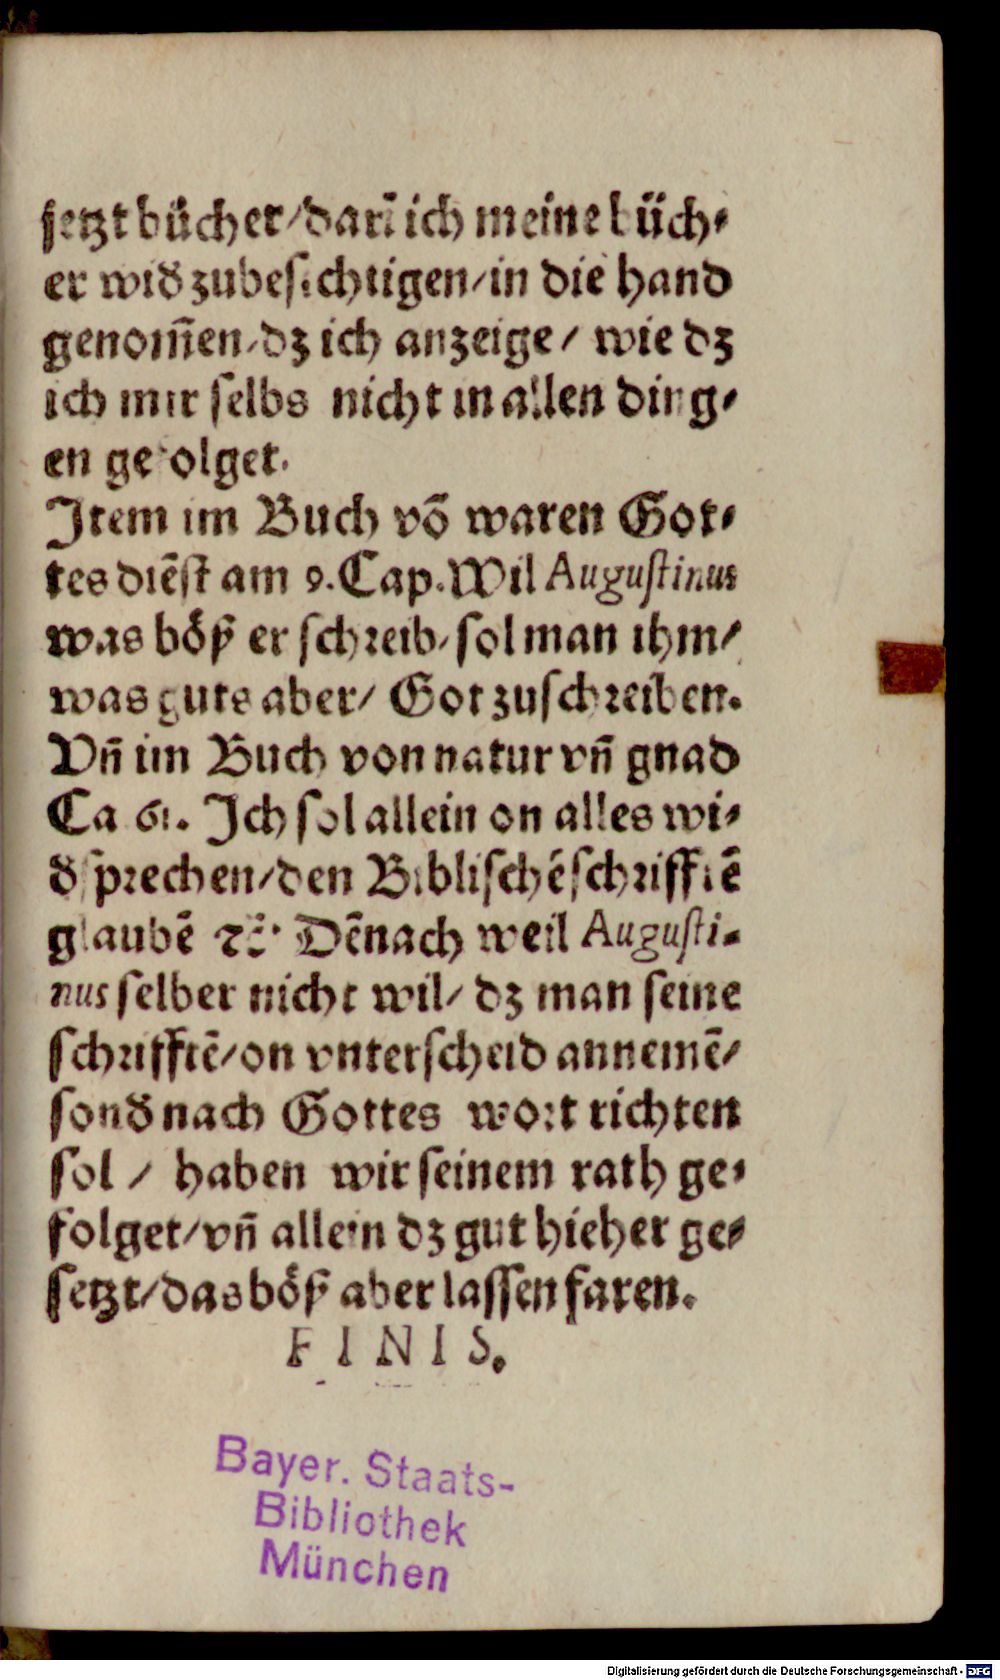 setzt bücher/darī ich meine büch⸗
er wid̄ zubesichtigen/in die hand
genom̄en/dz ich anzeige/ wie dz
ich mir selbs nicht in allen ding⸗
en gefolget.
Item im Buch võ waren Got⸗
tes diẽst am 9. Cap. Wil Augustinus
was böß er schreib/sol man ihm/
was guts aber/ Got zuschreiben.
Vñ im Buch von natur vñ gnad
Ca 61. Ich sol allein on alles wi⸗
d̄sprechen/den Biblischẽ schrifftẽ
glaubẽ ꝛc̃. Dẽnach weil Augusti-
nus selber nicht wil/ dz man seine
schrifftẽ/on vnterscheid annemẽ/
sond̄ nach Gottes wort richten
sol / haben wir seinem rath ge⸗
folget/vñ allein dz gut hieher ge⸗
setzt/das böß aber lassen faren.
FINIS.
Bayer. Staats-
Bibliothek
München
Digitalisierung gefördert durch die Deutsche Forschungsgemeinschaft - DFG